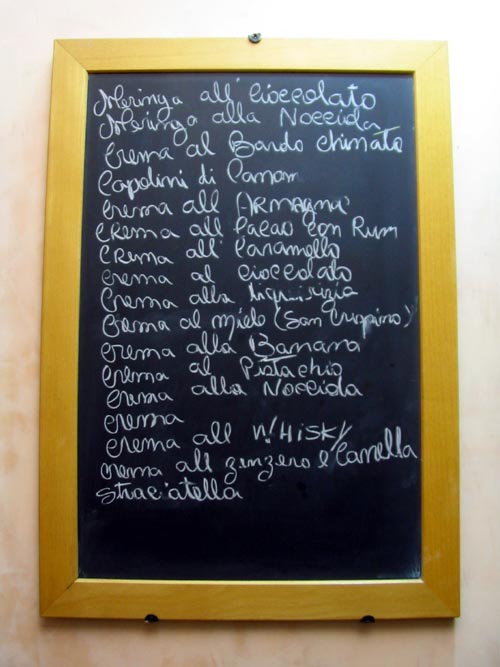 Meringa all' Cioccolato
Meringa alla Nocciola
Crema al Barolo chinato
Capolini di
Crema all' ARMAGNA'
CREMA all' Cacao con Rum
CREMA all' Caramello
Crema al cioccolato
Crema alla liquirizia
Crema al miele (San Cuppino)
Crema alla Banana
Crema al Pistachio
Crema alla Nocciola
Crema
Crema all WHiSKy
Crema all zenzero e Canella
Straciatella